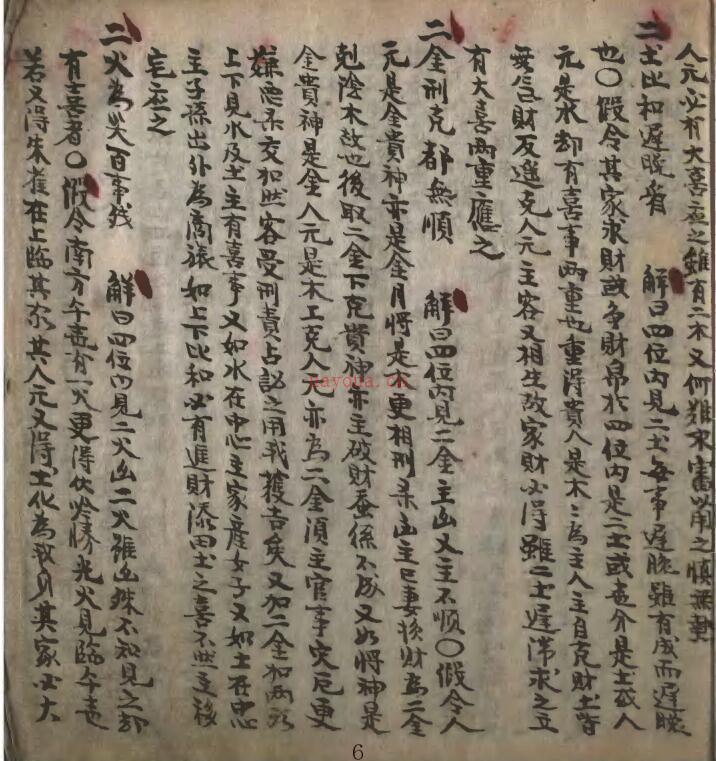 人元必有大喜应之虽有二木又何难求審以用之慎無重
二土比和遲晚看　解曰四位内見二土每事遲晚雖有成而遲晚
也〇假令其家求財或争財帛於四位内是二土或壹介是土或人
元是水却有喜事兩重也重得貴人是木木為主人主自克財土皆
無气財反進克人元主客又相生故家財必得雖二土遲滞求之立
有大喜兩重應之
二金刑克都無順　解曰四位内見二金主凶又主不順〇假令人
元是金貴神亦是金月將是木更相刑杀凶主妻损財為二金
剋陰木故也後取二金下克貴神亦主破財蚕係不成又如將神是
金貴神是金人元是木上克人元亦為二金須主官事灾厄更
嫌悪杀交加然客受刑責占訟之用我獲吉矣又加二金如兩
上下見水及土主有喜事又如水在中心主家産女子又如土在中心
主子孫出外為商旅如上下比和必有進財添田土之喜不然主移
宅应之
二火為災百事殘　解曰四位内見二火凶二火雖凶殊不和見之却
有喜者〇假令南方午壹有一火更得伏吟勝光火見臨午壹
若又得朱雀在上臨其家其人元又得土化為我見其家必大
nayoua.c
6